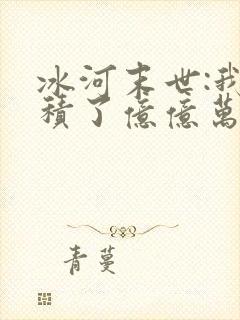 冰河末世:我
積了億億萬
青蔓